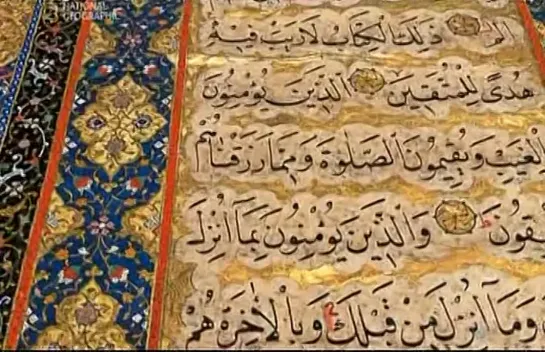 NATIONAL
GEOGRAPHIC
الم ذٰلِكَ الْكِتَابُ لَا رَيْبَ فِيهِ
هُدًى لِلْمُتَّقِينَ الَّذِينَ يُؤْمِنُونَ
الْغَيْبِ وَيُقِيمُونَ الصَّلٰوةَ وَمِمَّا رَزَقْنَاهُمْ
فِقُونَ وَالَّذِينَ يُؤْمِنُونَ بِمَآ اُنْزِلَ
وَمَآ اُنْزِلَ مِنْ قَبْلِكَ وَبِالْاٰخِرَةِ هُمْ